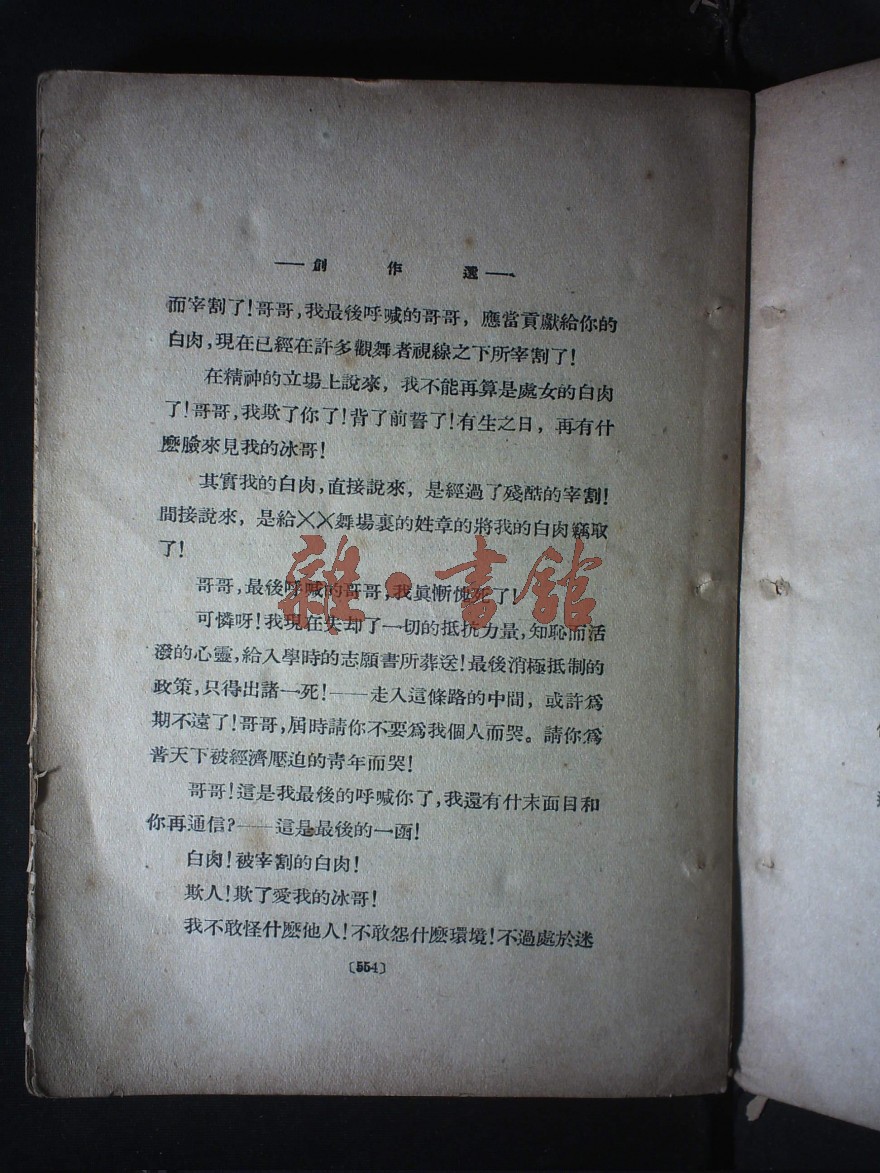 ——創作選——
而宰割了！哥哥，我最後呼喊的哥哥，應當貢獻給你的
白肉，現在已經在許多觀舞者視線之下所宰割了！
在精神的立場上說來，我不能再算是處女的白肉
了！哥哥，我欺了你了！背了前誓了！有生之日，再有什
麽臉來見我的冰哥！
其實我的白肉，直接說來，是經過了殘酷的宰割！
間接說來，是給××舞場裏的姓章的將我的白肉竊取
了！
哥哥，最後呼喊的哥哥，我眞慚愧死了！
可憐呀！我現在失却了一切的抵抗力量，知恥而活
潑的心靈，給入學時的志願書所葬送！最後消極抵制的
政策，只得出諸一死！——走入這條路的中間，或許爲
期不遠了！哥哥，屆時請你不要爲我個人而哭。請你爲
普天下被經濟壓迫的靑年而哭！
哥哥！這是我最後的呼喊你了，我還有什末面目和
你再通信？——這是最後的一函！
白肉！被宰割的白肉！
欺人！欺了愛我的冰哥！
我不敢怪什麽他人！不敢怨什麽環境！不過處於迷
〔554〕
雜·書館